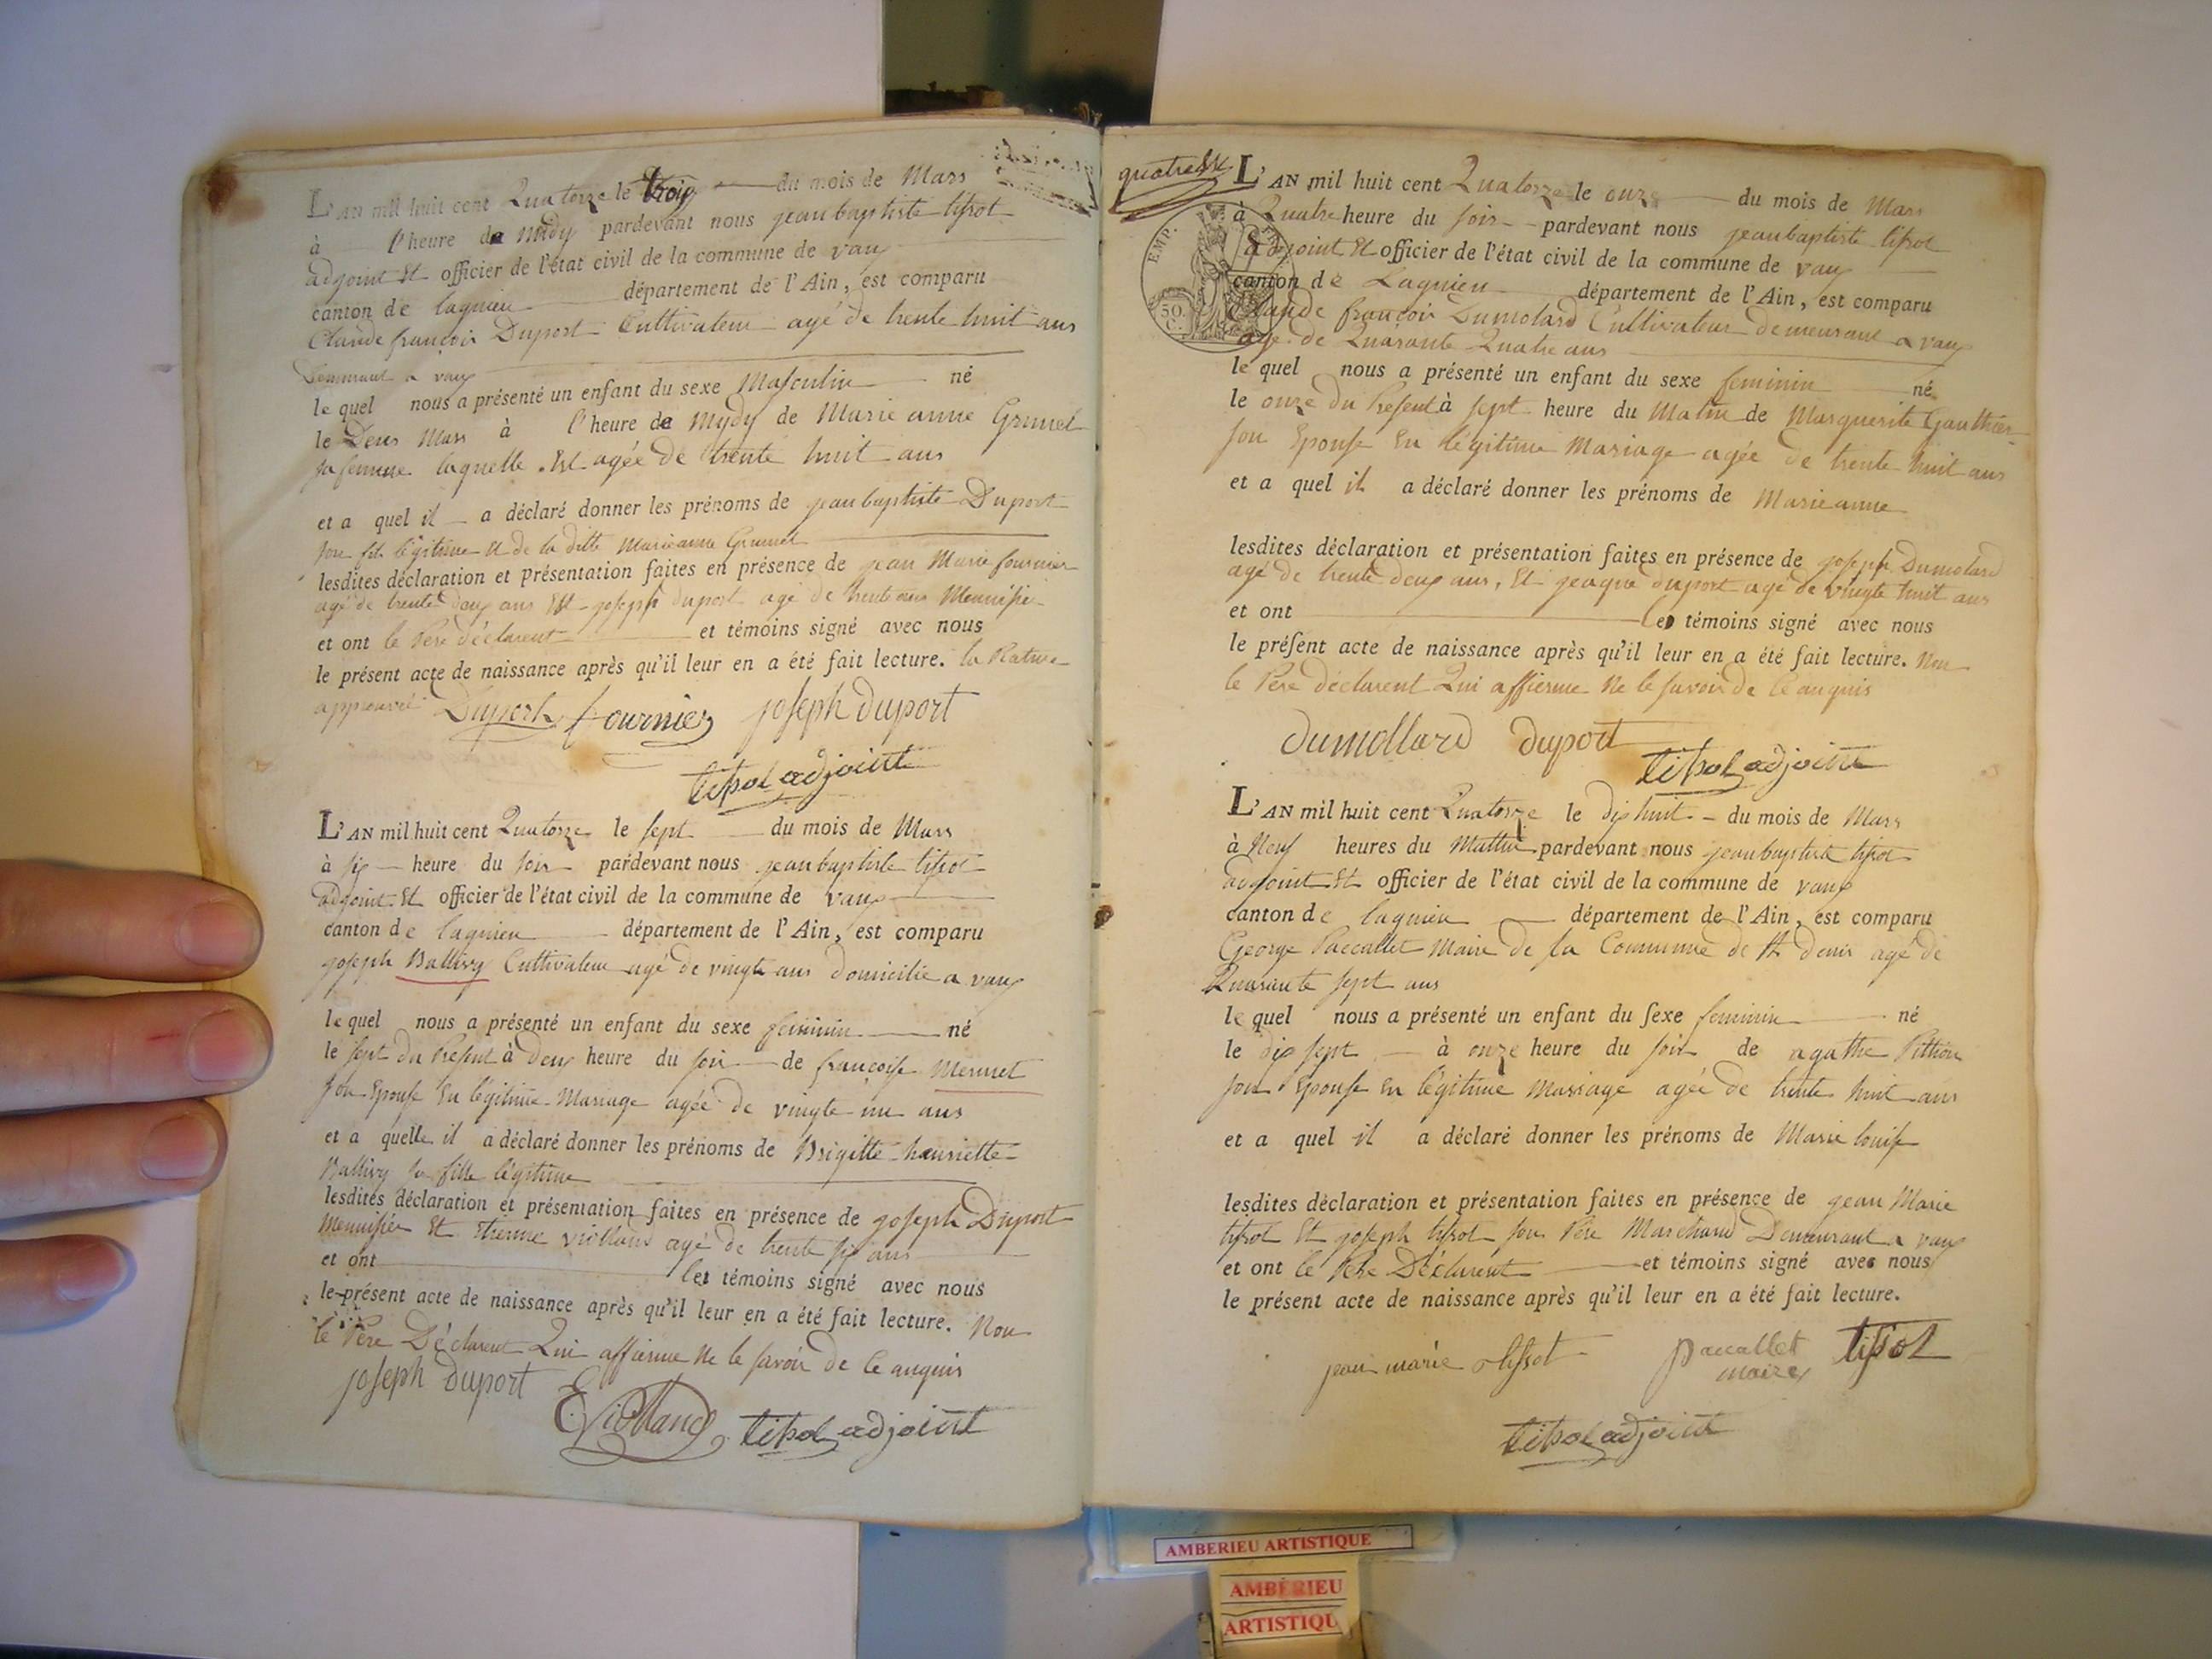 L'AN mil huit cent Quatorze le trois du mois de Mars
à l'heure de midy pardevant nous jean baptiste tissot
adjoint Et officier de l'état civil de la commune de vaux
canton de lagnieu département de l'Ain, est comparu
Claude françois Duport Cultivateur agé de trente huit ans
Demeurant a vaux
le quel nous a présenté un enfant du sexe Masculin né
le Deux Mars à l'heure de Mydy de Marie anne Grumel
sa femme laquelle Est agée de trente huit ans
et a quel il a déclaré donner les prénoms de jean baptiste Duport
son fils légitime Et de la ditte Marie anne Grumel
lesdites déclaration et présentation faites en présence de jean Marie fournier
agé de trente deux ans Et joseph duport agé de trente ans Menuisier
et ont le Pere déclarent et témoins signé avec nous
le présent acte de naissance après qu'il leur en a été fait lecture. la Rature
approuvé Duport fournier joseph duport
tissot adjoint
L'AN mil huit cent Quatorze le sept du mois de Mars
à six heure du soir pardevant nous jean baptiste tissot
adjoint Et officier de l'état civil de la commune de vaux
canton de lagnieu département de l'Ain, est comparu
joseph Ballivy Cultivateur agé de vingt ans domicilié a vaux
le quel nous a présenté un enfant du sexe feminin né
le sept du Présent à deux heure du soir de françoise Mermet
son Epouse En légitime Mariage agée de vingte un ans
et a quelle il a déclaré donner les prénoms de Brigitte henriette
Ballivy sa fille légitime
lesdites déclaration et présentation faites en présence de joseph Duport
Menuisier Et Etienne violland agé de trente six ans
et ont les témoins signé avec nous
le présent acte de naissance après qu'il leur en a été fait lecture. Non
le Pere Déclarent Qui affierme Ne le savoir de Ce anquis
joseph duport
E Violland tissot adjoint
quatre
L'AN mil huit cent Quatorze le onze du mois de Mars
à Quatre heure du soir pardevant nous jean baptiste tissot
adjoint Et officier de l'état civil de la commune de vaux
canton de Lagnieu département de l'Ain, est comparu
Claude françois Dumolard Cultivateur demeurant a vaux
agé de Quarante Quatre ans
EMP.
50 C.
le quel nous a présenté un enfant du sexe feminin né
le onze du Présent à sept heure du Matin de Marguerite Gauthier
son Epouse En légitime Mariage agée de trente huit ans
et a quel il a déclaré donner les prénoms de Marie anne
lesdites déclaration et présentation faites en présence de joseph Dumolard
agé de trente deux ans, Et jeaque duport agé de vingte huit ans
et ont les témoins signé avec nous
le présent acte de naissance après qu'il leur en a été fait lecture. Non
le Pere déclarent Qui affierme Ne le savoir de Ce anquis
dumollard duport
tissot adjoint
L'AN mil huit cent Quatorze le dix huit du mois de Mars
à Neuf heures du Mattin pardevant nous jean baptiste tissot
adjoint Et officier de l'état civil de la commune de vaux
canton de lagnieu département de l'Ain, est comparu
George Paccallet Maire de la Commune de St denis agé de
Quarante sept ans
le quel nous a présenté un enfant du sexe feminin né
le dix sept à onze heure du soir de agathe Pithion
son Epouse en légitime Mariage agée de trente huit ans
et a quel il a déclaré donner les prénoms de Marie louise
lesdites déclaration et présentation faites en présence de jean Marie
tissot Et joseph tissot son Pere Marchand Demeurant a vaux
et ont le Pere Déclarent et témoins signé avec nous
le présent acte de naissance après qu'il leur en a été fait lecture.
jean marie tissot paccallet maire tissot
tissot adjoint
AMBERIEU ARTISTIQUE
AMBERIEU
ARTISTIQU